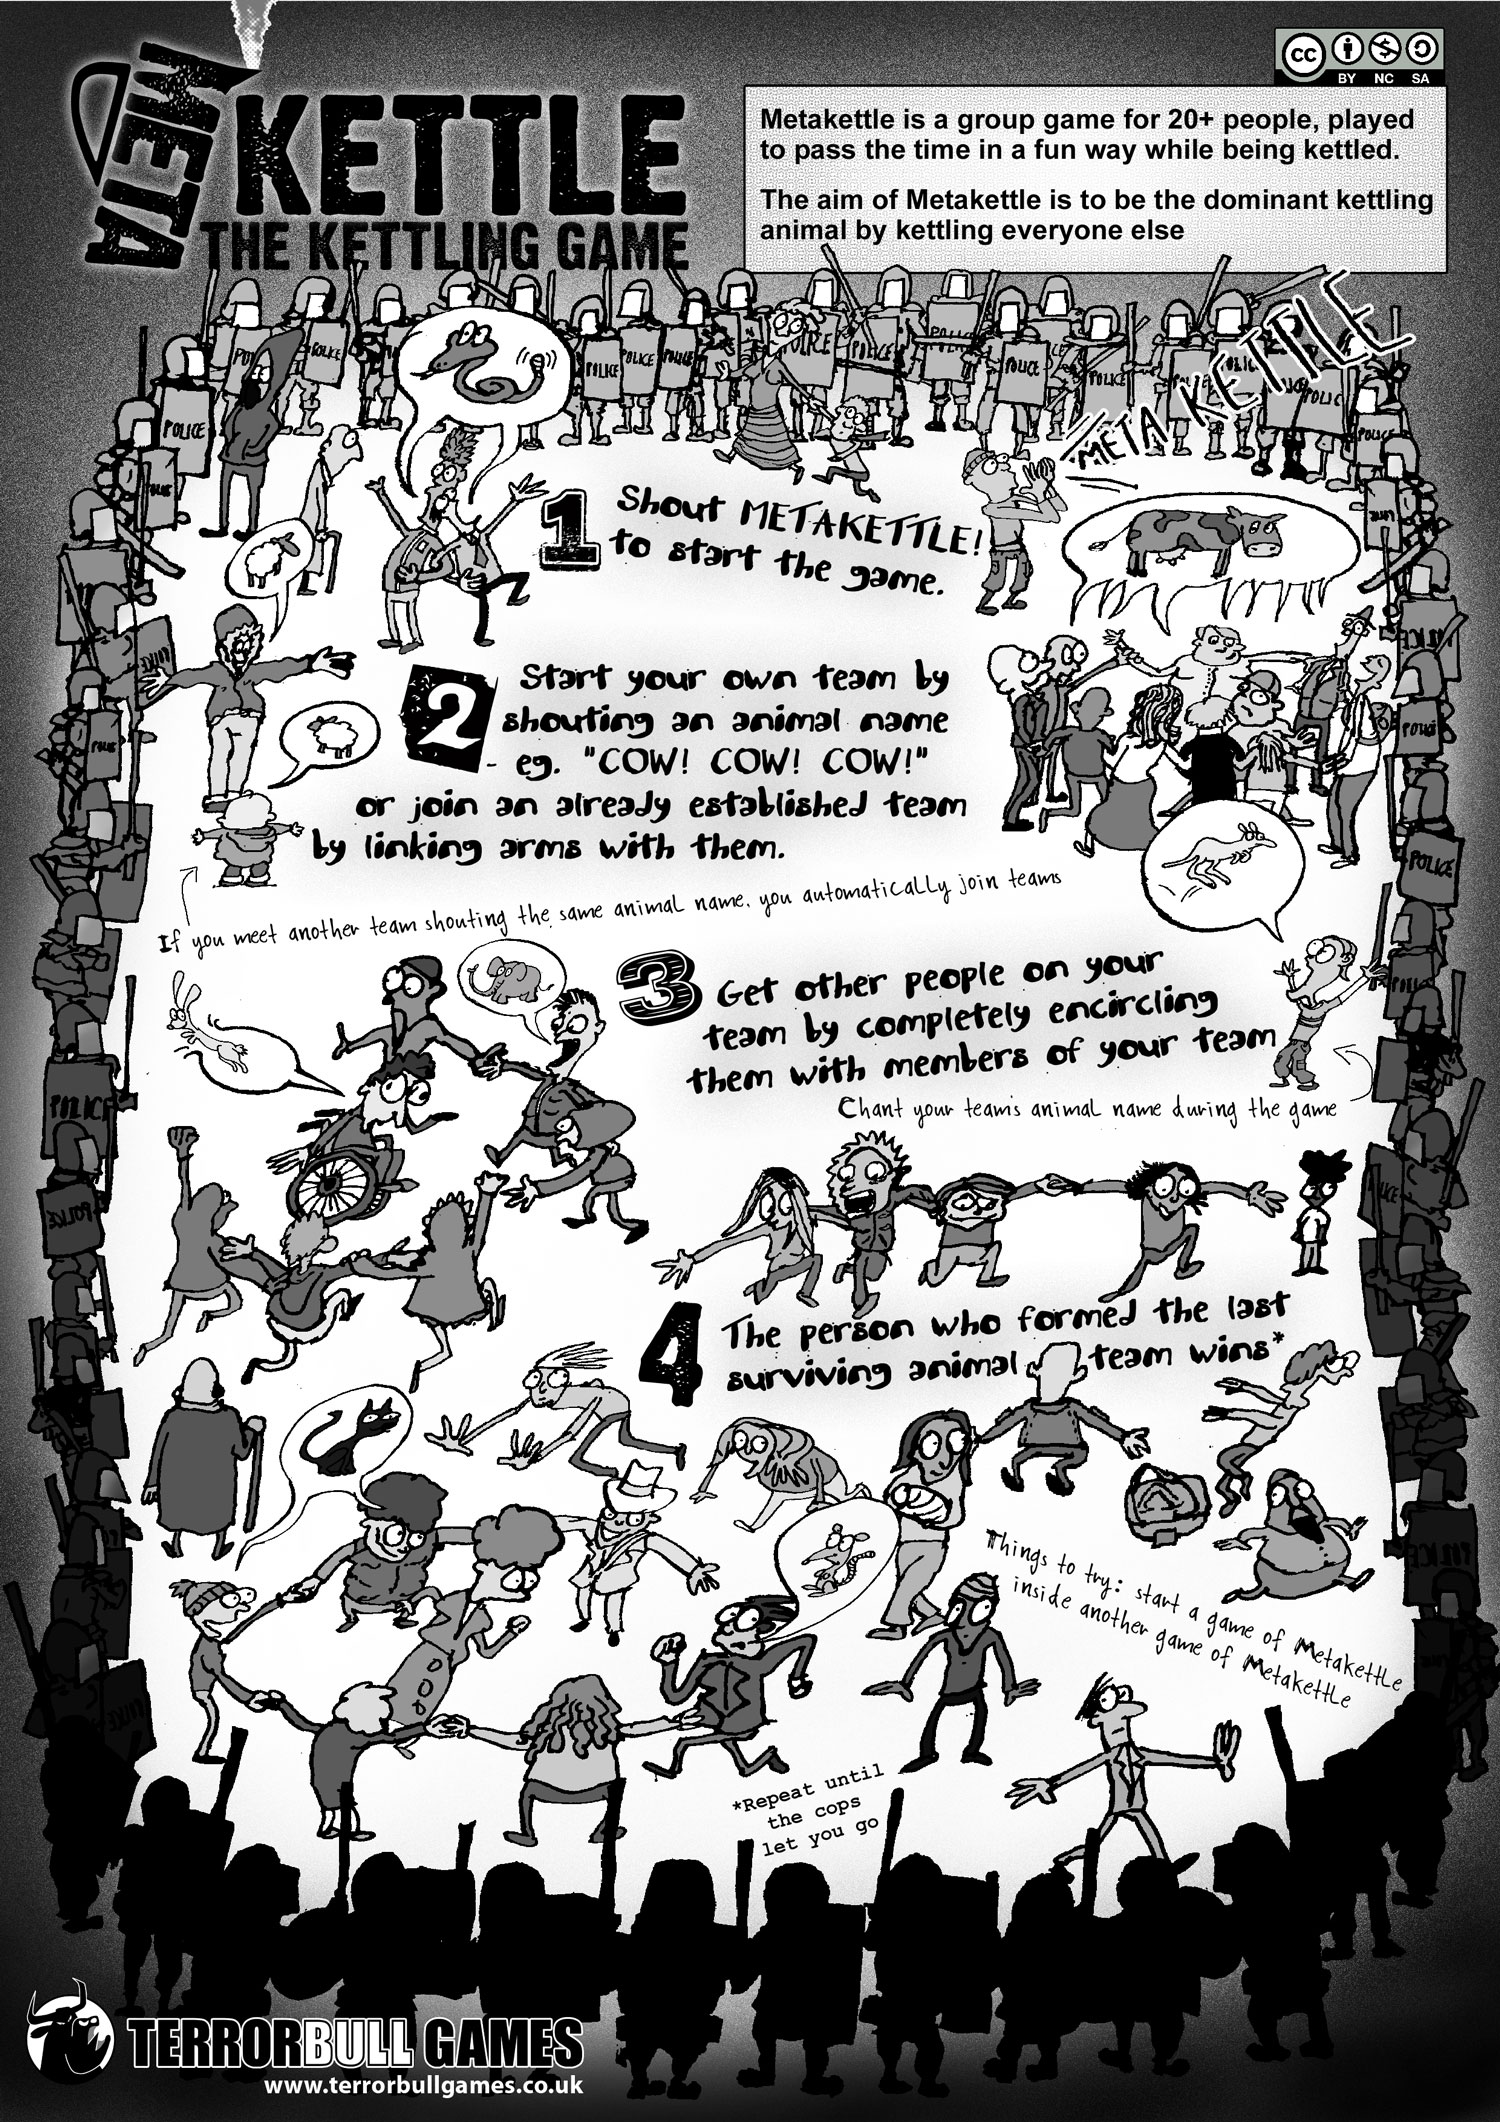 META
KETTLE
THE KETTLING GAME
cc
BY NC SA
Metakettle is a group game for 20+ people, played
to pass the time in a fun way while being kettled.
The aim of Metakettle is to be the dominant kettling
animal by kettling everyone else
METAKETTLE
POLICE
POLICE
POLICE
POLICE
POLICE
POLICE
POLICE
POLICE
POLICE
POLICE
1 Shout METAKETTLE!
to start the game.
2 Start your own team by
shouting an animal name
- eg. "COW! COW! COW!"
or join an already established team
by linking arms with them.
If you meet another team shouting the same animal name, you automatically join teams
POLICE
3 Get other people on your
team by completely encircling
them with members of your team
Chant your team's animal name during the game
POLICE
4 The person who formed the last
surviving animal team wins*
Things to try: start a game of Metakettle
inside another game of Metakettle
*Repeat until
the cops
let you go
TERRORBULL GAMES
www.terrorbullgames.co.uk